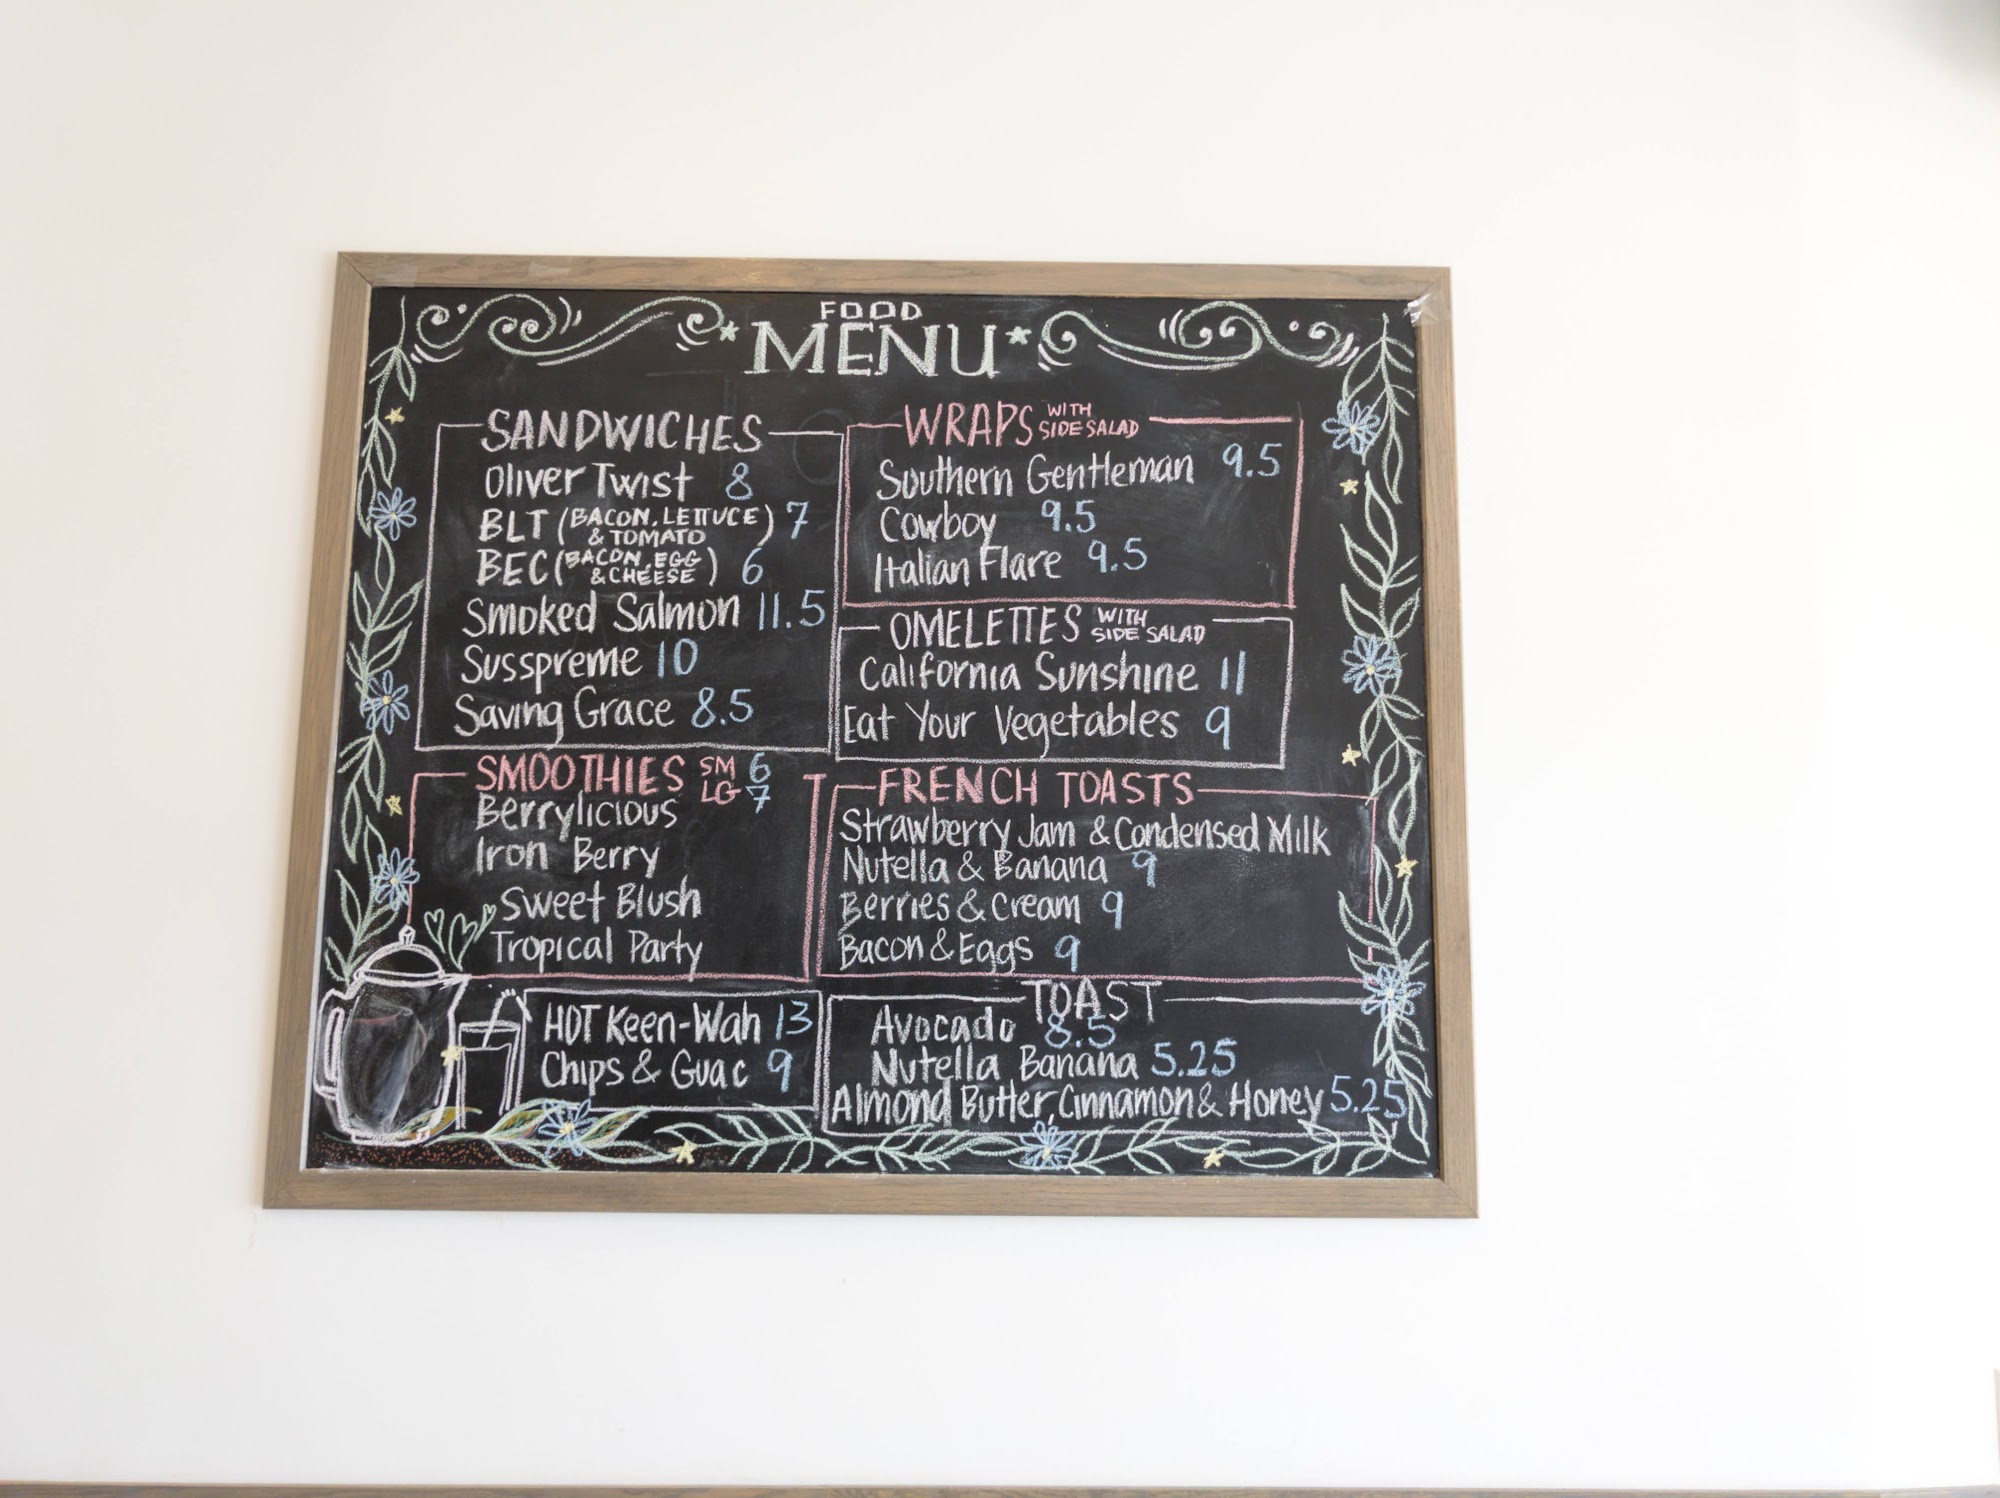 FOOD
MENU
SANDWICHES
Oliver Twist 8
BLT (BACON, LETTUCE
& TOMATO) 7
BEC (BACON, EGG
& CHEESE) 6
Smoked Salmon 11.5
Susspreme 10
Saving Grace 8.5
SMOOTHIES SM 6
LG 7
Berrylicious
Iron Berry
Sweet Blush
Tropical Party
HOT Keen-Wah 13
Chips & Guac 9
WRAPS WITH
SIDE SALAD
Southern Gentleman 9.5
Cowboy 9.5
Italian Flare 9.5
OMELETTES WITH
SIDE SALAD
California Sunshine 11
Eat Your Vegetables 9
FRENCH TOASTS
Strawberry Jam & Condensed Milk
Nutella & Banana 9
Berries & Cream 9
Bacon & Eggs 9
TOAST
Avocado 8.5
Nutella Banana 5.25
Almond Butter, Cinnamon & Honey 5.25